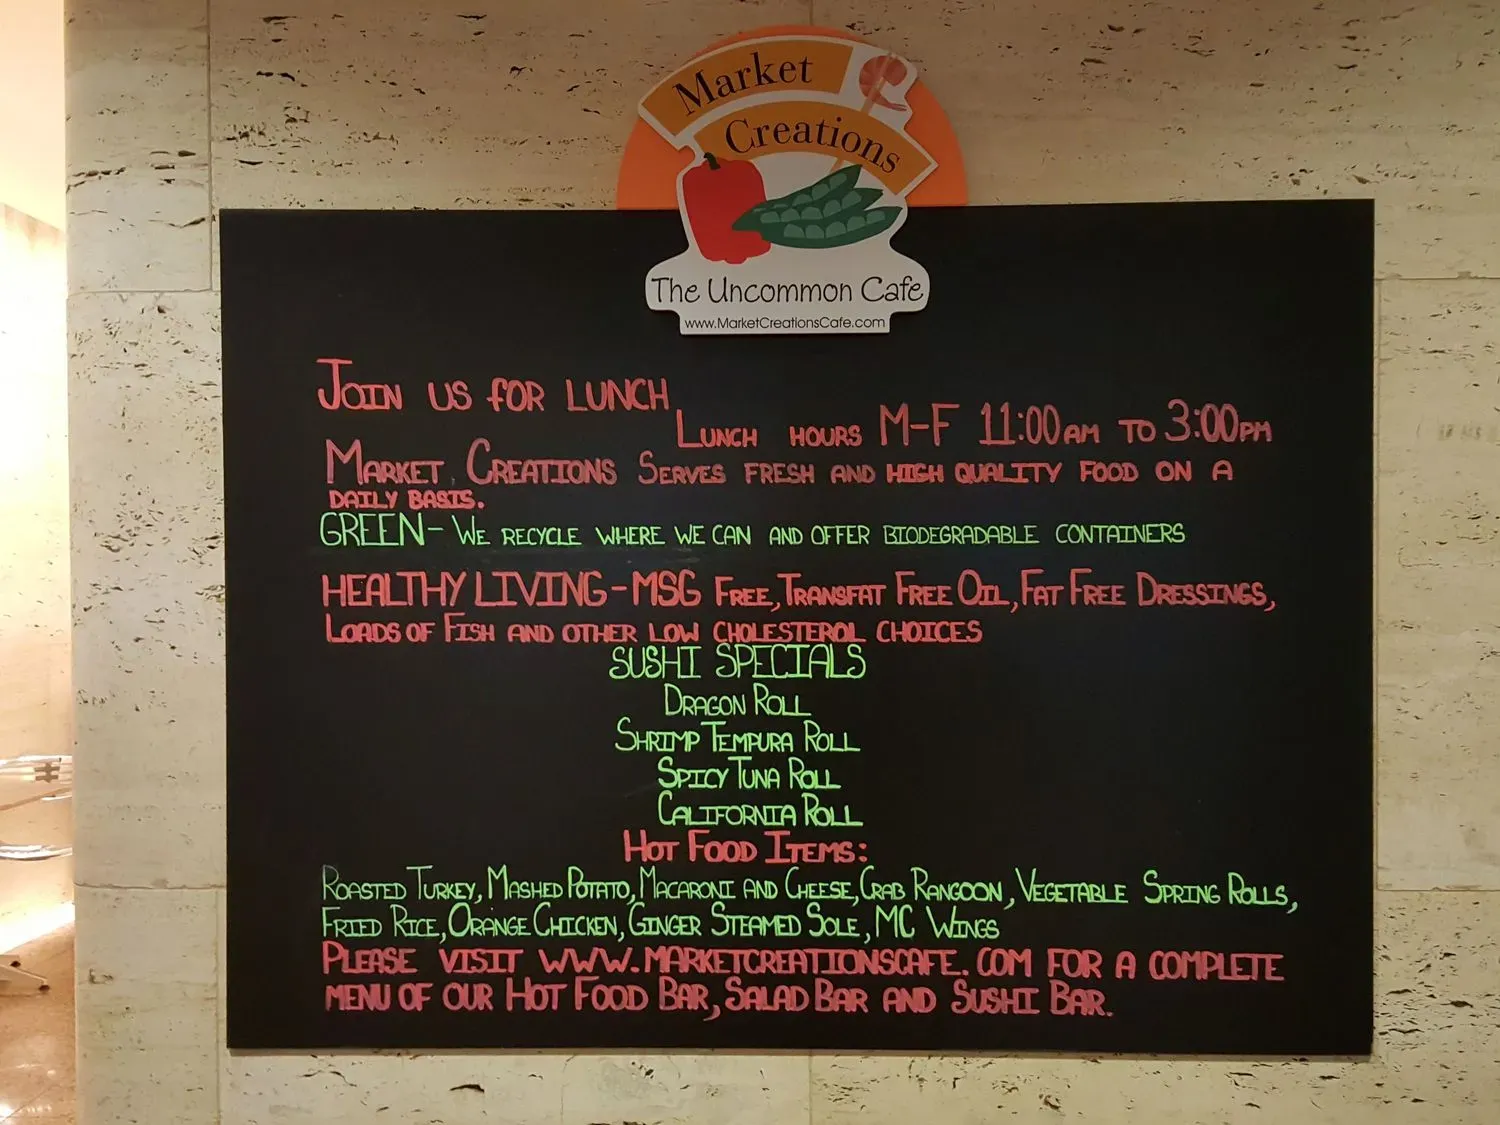 Market
Creations
The Uncommon Cafe
www.MarketCreationsCafe.com
JOIN US FOR LUNCH
LUNCH HOURS M-F 11:00AM TO 3:00PM
MARKET CREATIONS SERVES FRESH AND HIGH QUALITY FOOD ON A
DAILY BASIS.
GREEN- WE RECYCLE WHERE WE CAN AND OFFER BIODEGRADABLE CONTAINERS
HEALTHY LIVING-MSG FREE, TRANSFAT FREE OIL, FAT FREE DRESSINGS,
LOADS OF FISH AND OTHER LOW CHOLESTEROL CHOICES
SUSHI SPECIALS
DRAGON ROLL
SHRIMP TEMPURA ROLL
SPICY TUNA ROLL
CALIFORNIA ROLL
HOT FOOD ITEMS:
ROASTED TURKEY, MASHED POTATO, MACARONI AND CHEESE, CRAB RANGOON, VEGETABLE SPRING ROLLS,
FRIED RICE, ORANGE CHICKEN, GINGER STEAMED SOLE, MC WINGS
PLEASE VISIT WWW.MARKETCREATIONSCAFE.COM FOR A COMPLETE
MENU OF OUR HOT FOOD BAR, SALAD BAR AND SUSHI BAR.